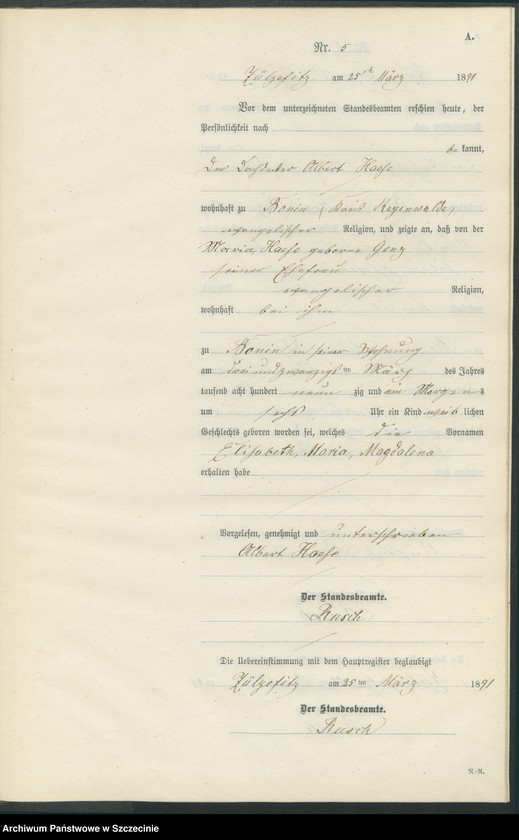 A.
Nr. 5
Zülzefitz am 25ten März 1891
Vor dem unterzeichneten Standesbeamten erschien heute, der
Persönlichkeit nach
be kannt,
der Albert Haese
wohnhaft zu Bonin, Kreis Regenwalde,
evangelischer Religion, und zeigte an, daß von der
Maria Haese geborne Genz
seiner Ehefrau
evangelischer Religion,
wohnhaft bei ihm
zu Bonin in seiner Wohnung
am drei und zwanzigsten März des Jahres
tausend acht hundert neun zig und ein Morgens
um sechs Uhr ein Kind weib lichen
Geschlechts geboren worden sei, welches die Vornamen
Elisabeth, Maria, Magdalena
erhalten habe
Vorgelesen, genehmigt und unterschrieben
Albert Haese
Der Standesbeamte.
Rusch
Die Uebereinstimmung mit dem Hauptregister beglaubigt
Zülzefitz am 25 ten März 1891
Der Standesbeamte.
Rusch
Archiwum Państwowe w Szczecinie